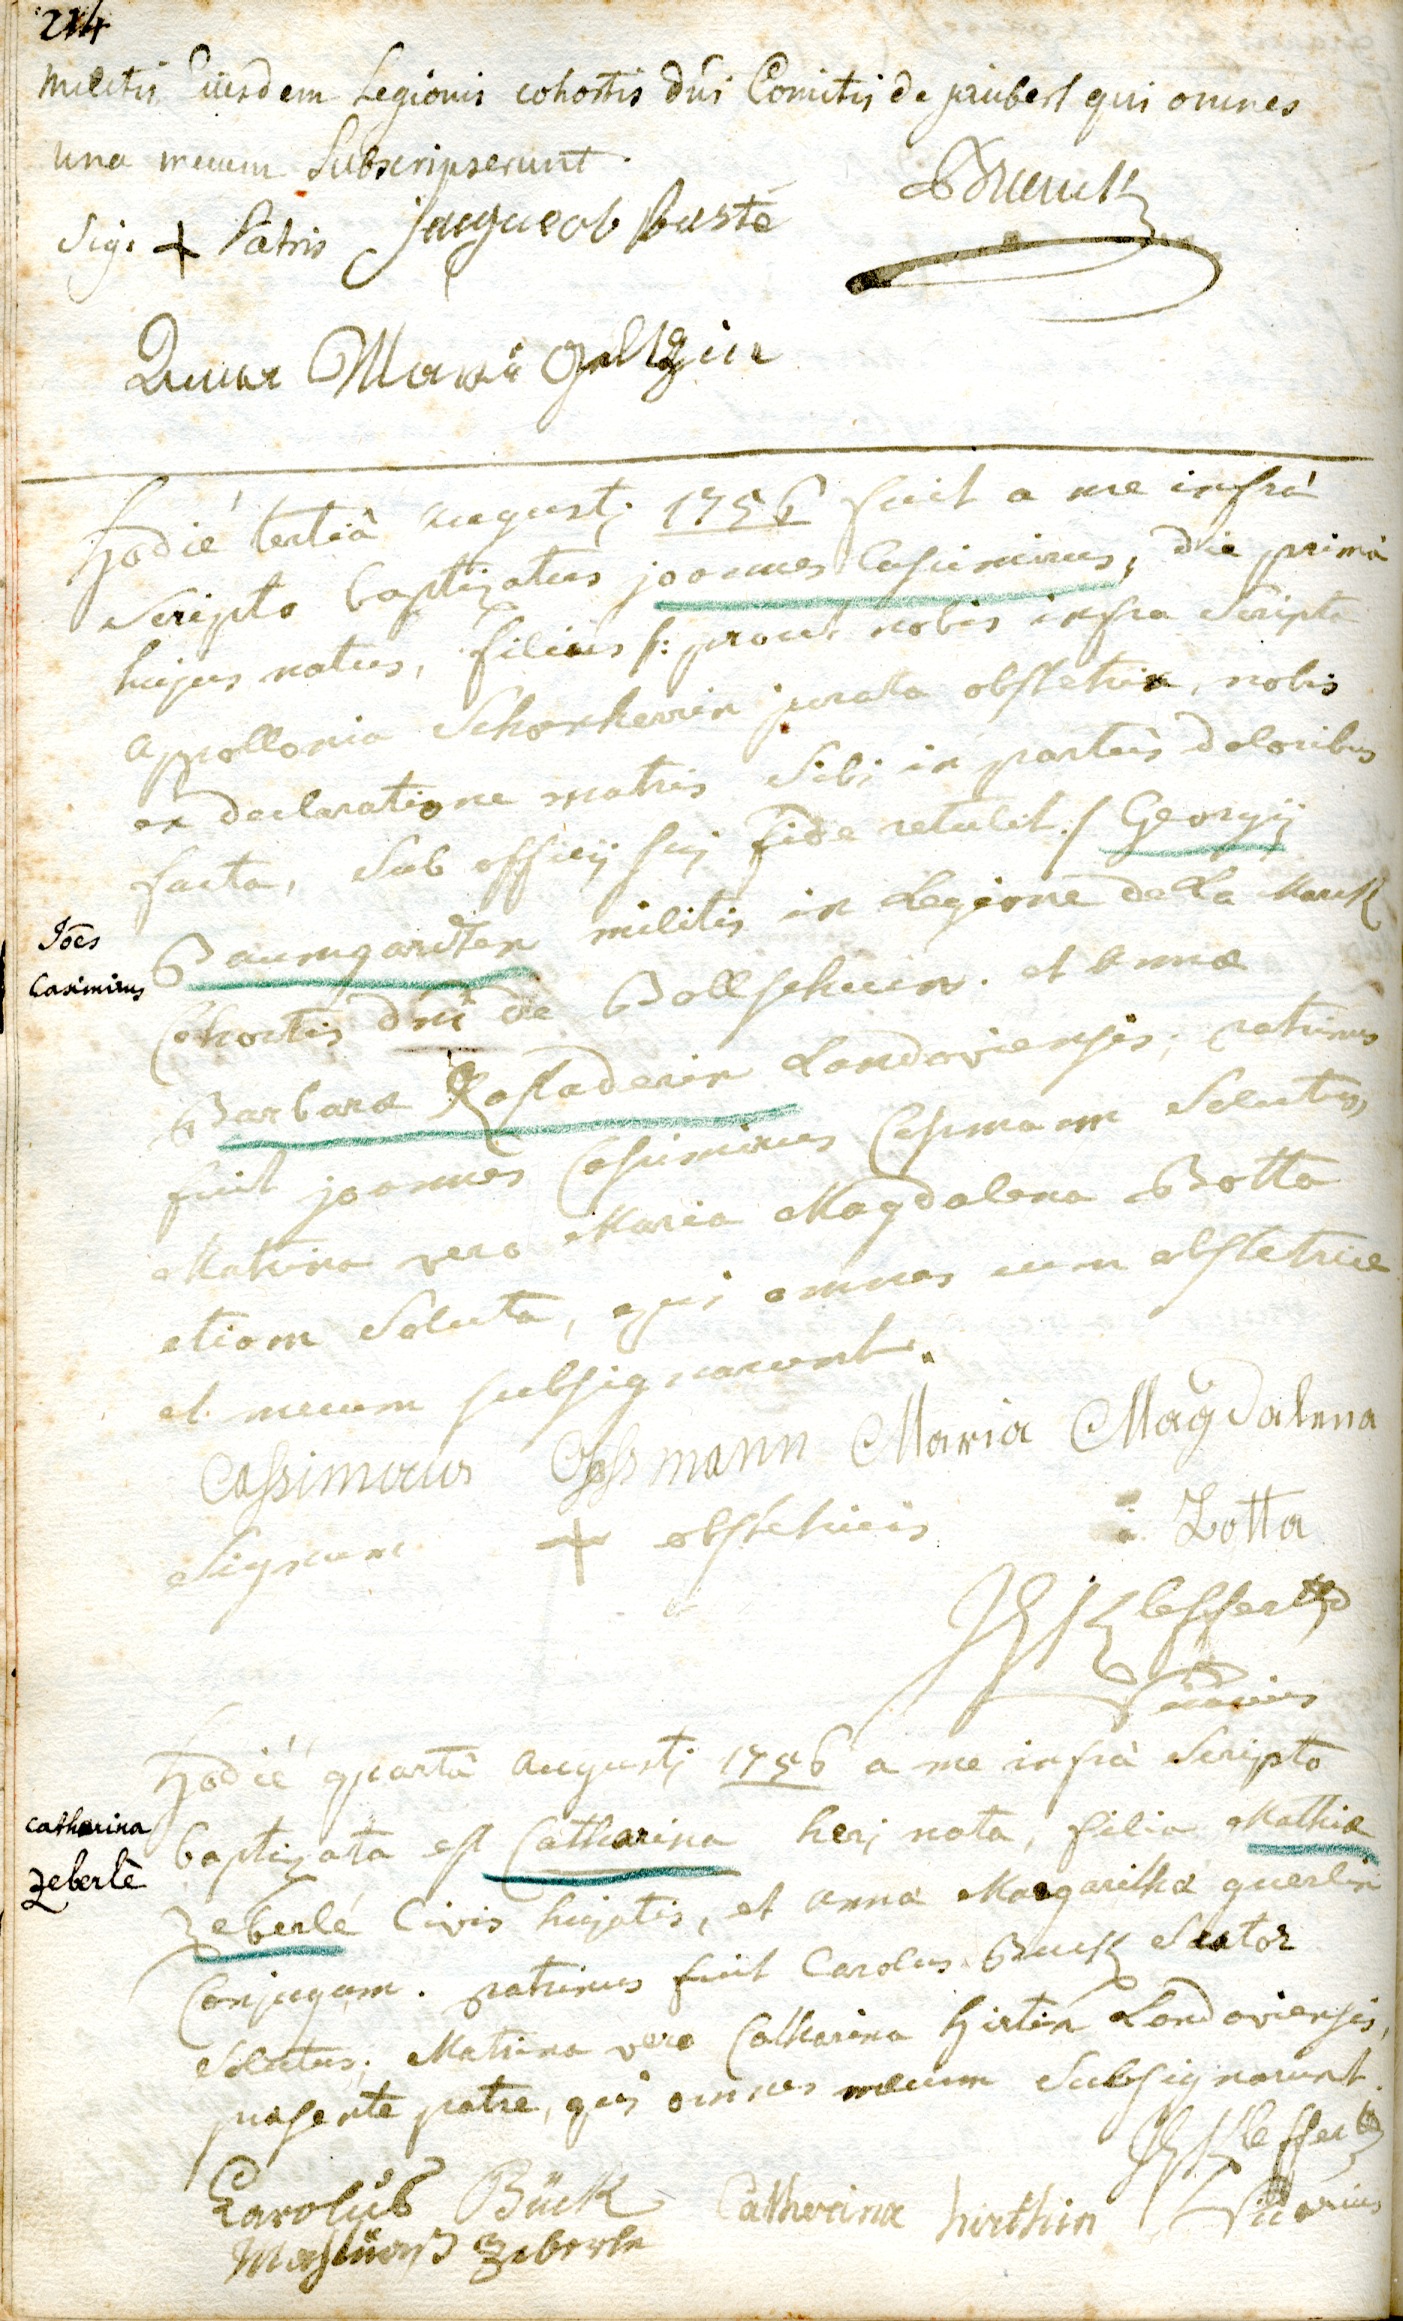 214
militis Eiusdem Legionis cohortis dni Comitis de jaubert qui omnes
una mecum Subscripserunt.
Sig: + Patris jacqueob
Maria
Hodié tertiâ augustj 1756 fuit a me infrà
Scripto baptizatus joannes Casimirus, die primâ
hujus natus, filius /: prout nobis infra Scripta
appollonia jurata obstetrix, nobis
ex declaratione matris Sibi in partûs doloribus
facta, Sub officij suj fide retulit ./ Georgij
Baumgardten militis in Legione de La Marck
Cohortis dni de Bollschuin. et annæ
Joës
Casimirus
Barbaræ Landaviensis; patrinus
fuit joannes Casimirus Cosmann Solutus,
Matrina vero Maria Magdalena Botta
etiam Soluta, qui omnes cum obstetrice
et mecum subsignarunt.
Cassimirus Maria Magdalena
Signum + obstetricis Zotta
Vicarius
Hodié quartâ augustj 1756 a me infrà Scripto
baptizata est Catharina herj nata, filia Mathiæ
catharina
Zeberlé
Zeberlé Civis hujatis, et annæ Margarithæ querlin
Conjugum. patrinus fuit Carolus Buck Sartor
Solutus; Matrina vero Catharina hirtin Landaviensis,
præsente patre, qui omnes mecum Subsignarunt.
Carolus Bück Catherina hirthin Vicarius
Zeberle